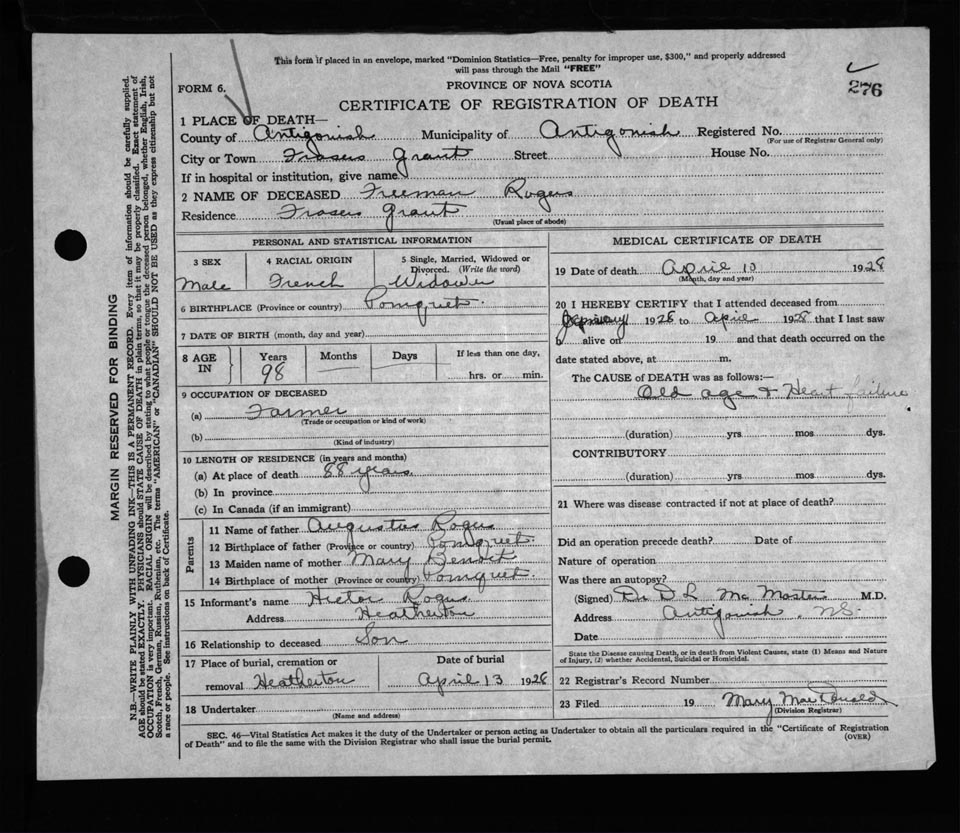 This form if placed in an envelope, marked "Dominion Statistics—Free, penalty for improper use, $300," and properly addressed
will pass through the Mail "FREE"
FORM 6.
PROVINCE OF NOVA SCOTIA
276
CERTIFICATE OF REGISTRATION OF DEATH
1 PLACE OF DEATH—
County of Antigonish Municipality of Antigonish Registered No.
(For use of Registrar General only)
City or Town Frasers Grant Street House No.
If in hospital or institution, give name
2 NAME OF DECEASED Freeman Rogers
Residence Frasers Grant
(Usual place of abode)
PERSONAL AND STATISTICAL INFORMATION
3 SEX 4 RACIAL ORIGIN 5 Single, Married, Widowed or
Divorced. (Write the word)
Male French Widower
6 BIRTHPLACE (Province or country) Pomquet.
7 DATE OF BIRTH (month, day and year)
8 AGE IN Years Months Days If less than one day,
98 hrs. or min.
9 OCCUPATION OF DECEASED
(a) Farmer
(Trade or occupation or kind of work)
(b)
(Kind of industry)
10 LENGTH OF RESIDENCE (in years and months)
(a) At place of death 88 years
(b) In province
(c) In Canada (if an immigrant)
Parents
11 Name of father Augustus Rogers
12 Birthplace of father (Province or country) Pomquet.
13 Maiden name of mother Mary Benoit
14 Birthplace of mother (Province or country) Pomquet.
15 Informant's name Hector Rogers
Address Heatherton
16 Relationship to deceased Son
17 Place of burial, cremation or Date of burial
removal Heatherton April 13 1928
18 Undertaker
(Name and address)
MEDICAL CERTIFICATE OF DEATH
19 Date of death April 10 1928
(Month, day and year)
20 I HEREBY CERTIFY that I attended deceased from
1928 to April 1928 that I last saw
h alive on 19 and that death occurred on the
date stated above, at m.
The CAUSE of DEATH was as follows:—
Old age & Heart failure
(duration) yrs mos dys.
CONTRIBUTORY
(duration) yrs mos dys.
21 Where was disease contracted if not at place of death?
Did an operation precede death? Date of
Nature of operation
Was there an autopsy?
(Signed) Dr D L McMaster M.D.
Address Antigonish, NS.
Date
State the Disease causing Death, or in death from Violent Causes, state (1) Means and Nature
of Injury, (2) whether Accidental, Suicidal or Homicidal.
22 Registrar's Record Number
23 Filed 19 Mary MacDonald
(Division Registrar)
SEC. 46—Vital Statistics Act makes it the duty of the Undertaker or person acting as Undertaker to obtain all the particulars required in the "Certificate of Registration
of Death" and to file the same with the Division Registrar who shall issue the burial permit.
(OVER)
MARGIN RESERVED FOR BINDING
N.B.—WRITE PLAINLY WITH UNFADING INK—THIS IS A PERMANENT RECORD. Every item of information should be carefully supplied.
AGE should be stated EXACTLY. PHYSICIANS should STATE CAUSE OF DEATH in plain terms, so that it may be properly classified. Exact statement of
OCCUPATION is very important. RACIAL ORIGIN will be described by stating to what people or tongue the deceased person belonged, whether English, Irish,
Scotch, French, German, Russian, Ruthenian, etc. The terms "AMERICAN" or "CANADIAN" SHOULD NOT BE USED as they express citizenship but not
a race or people. See instructions on back of Certificate.